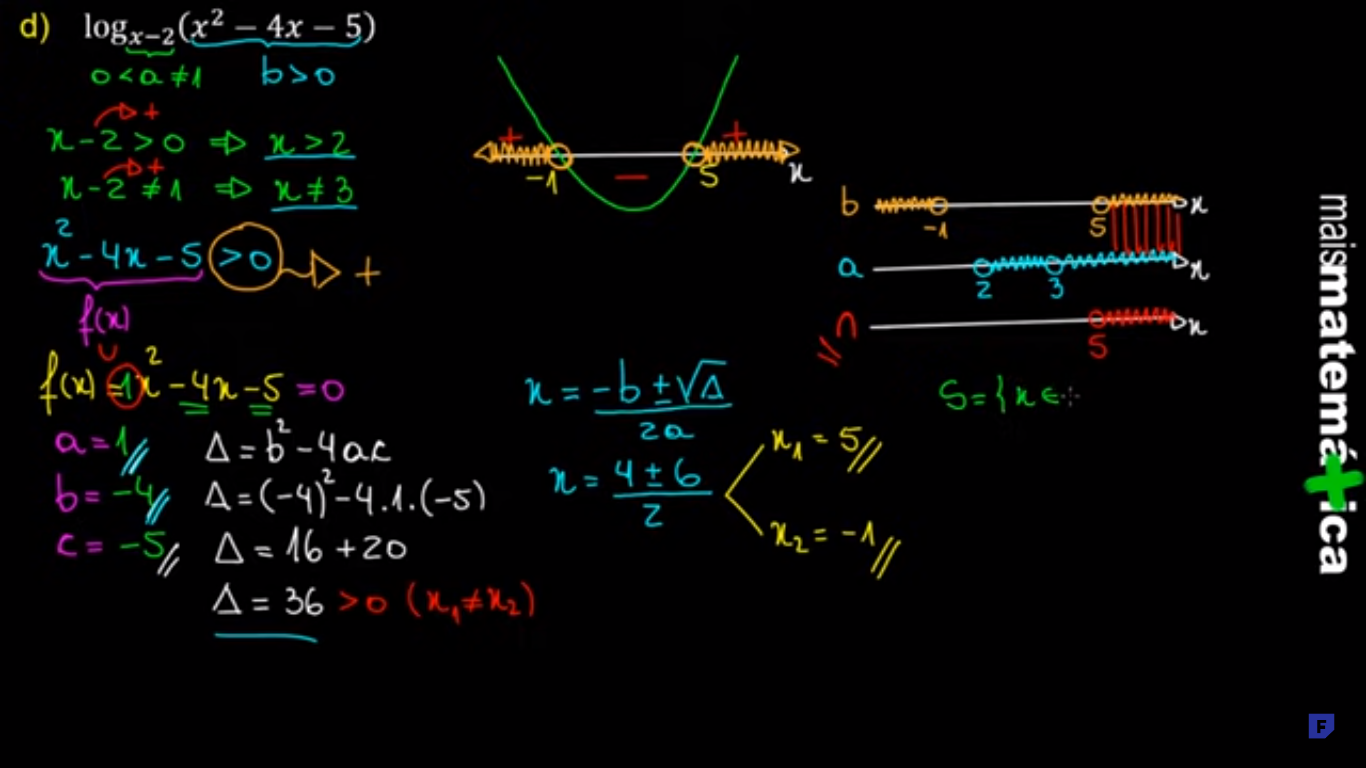 d) log_{x-2}(x² - 4x - 5)
0 < a ≠ 1 b > 0
+
x - 2 > 0 ⇒ x > 2
+
x - 2 ≠ 1 ⇒ x ≠ 3
x² - 4x - 5 > 0 → +
f(x)
f(x) = 1x² - 4x - 5 = 0
a = 1
b = -4
c = -5
Δ = b² - 4ac
Δ = (-4)² - 4.1.(-5)
Δ = 16 + 20
Δ = 36 > 0 (x₁ ≠ x₂)
+ +
-1 − 5 x
x = (-b ± √Δ)/2a
x = (4 ± 6)/2
x₁ = 5
x₂ = -1
b x
-1 5
a x
2 3
∩ x
5
S = { x ∈
maismatemática
F